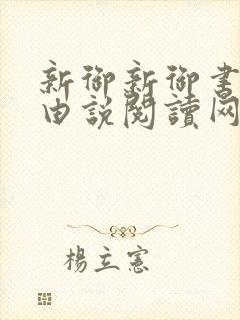 新御新御書
由說閱讀网
楊立憲